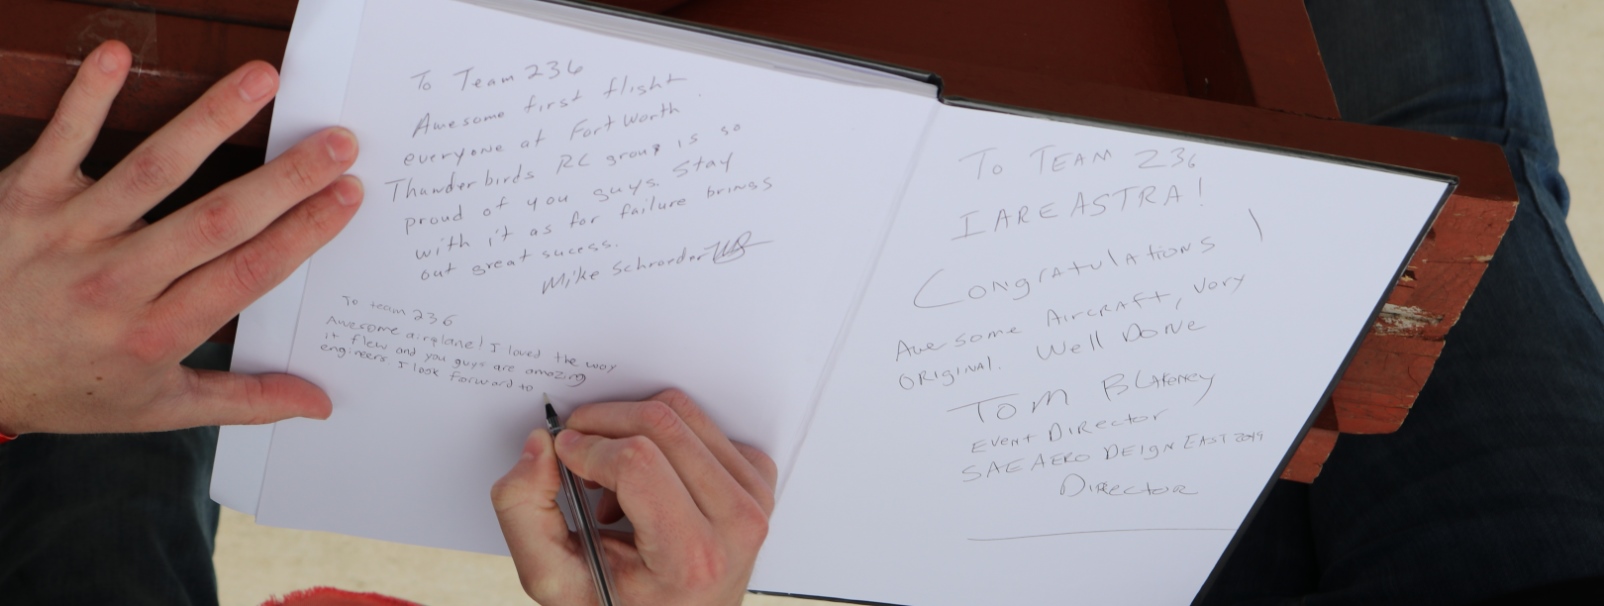 To Team 236
Awesome first flight
everyone at Fort Worth
Thunderbirds RC group is so
proud of you guys. Stay
with it as for failure brings
out great sucess.
Mike Schroeder
To team 236
Awesome airplane! I loved the way
it flew and you guys are amazing
engineers. I look forward to
TO TEAM 236
I ARE ASTRA!
CONGRATULATIONS !
AWESOME AIRCRAFT, VORY
ORIGINAL. WELL DONE
TOM BLAKENEY
EVENT DIRECTOR
SAE AERO DEIGN EAST 2019
DIRECTOR